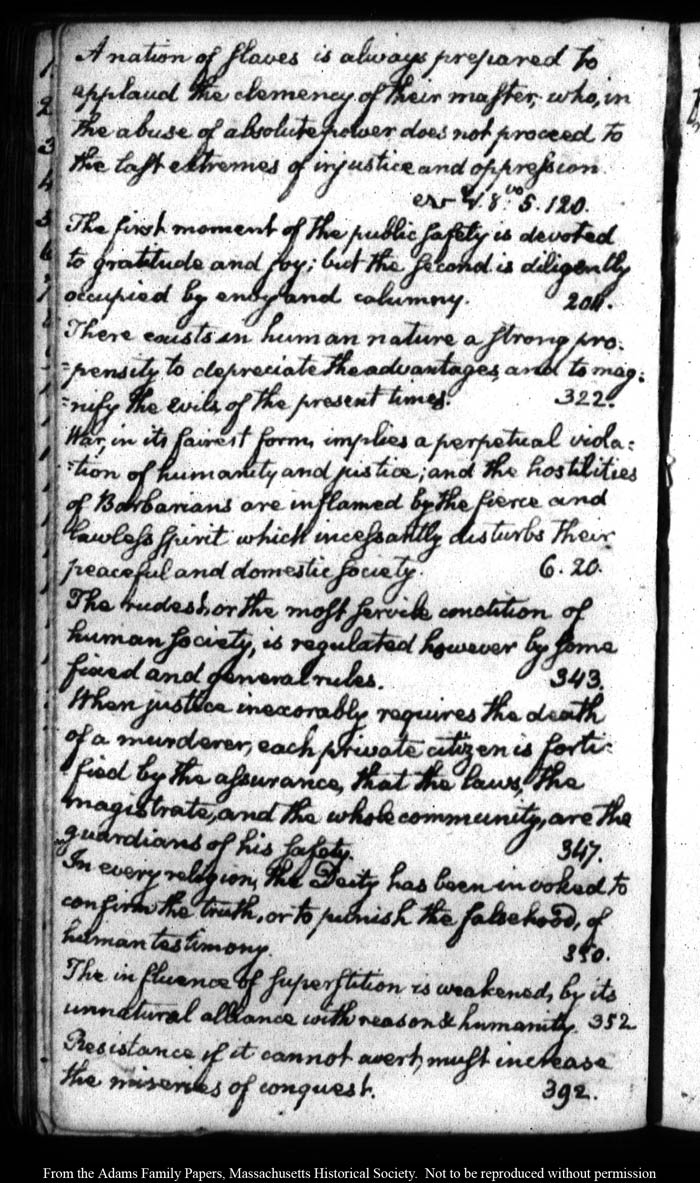 A nation of slaves is always prepared to
applaud the clemency of their master, who, in
the abuse of absolute power does not proceed to
the last extremes of injustice and oppression.
5. 120.
The first moment of the public safety is devoted
to gratitude and joy; but the second is diligently
occupied by envy and calumny.
There exists in human nature a strong pro:
=pensity to depreciate the advantages, and to mag:
=nify the evils, of the present times. 322.
War, in its fairest form, implies a perpetual viola:
=tion of humanity and justice; and the hostilities
of Barbarians are inflamed by the fierce and
lawless spirit which incessantly disturbs their
peaceful and domestic society. 6. 20.
The rudest, or the most servile condition of
human society, is regulated however by some
fixed and general rules. 343.
When justice inexorably requires the death
of a murderer, each private citizen is forti:
fied by the assurance, that the laws, the
magistrate, and the whole community, are the
guardians of his safety. 347.
In every religion, the Deity has been invoked to
confirm the truth, or to punish the falsehood, of
human testimony. 350.
The influence of superstition is weakened, by its
unnatural alliance with reason & humanity. 352
Resistance if it cannot avert, must increase
the miseries of conquest. 392.
From the Adams Family Papers, Massachusetts Historical Society. Not to be reproduced without permission